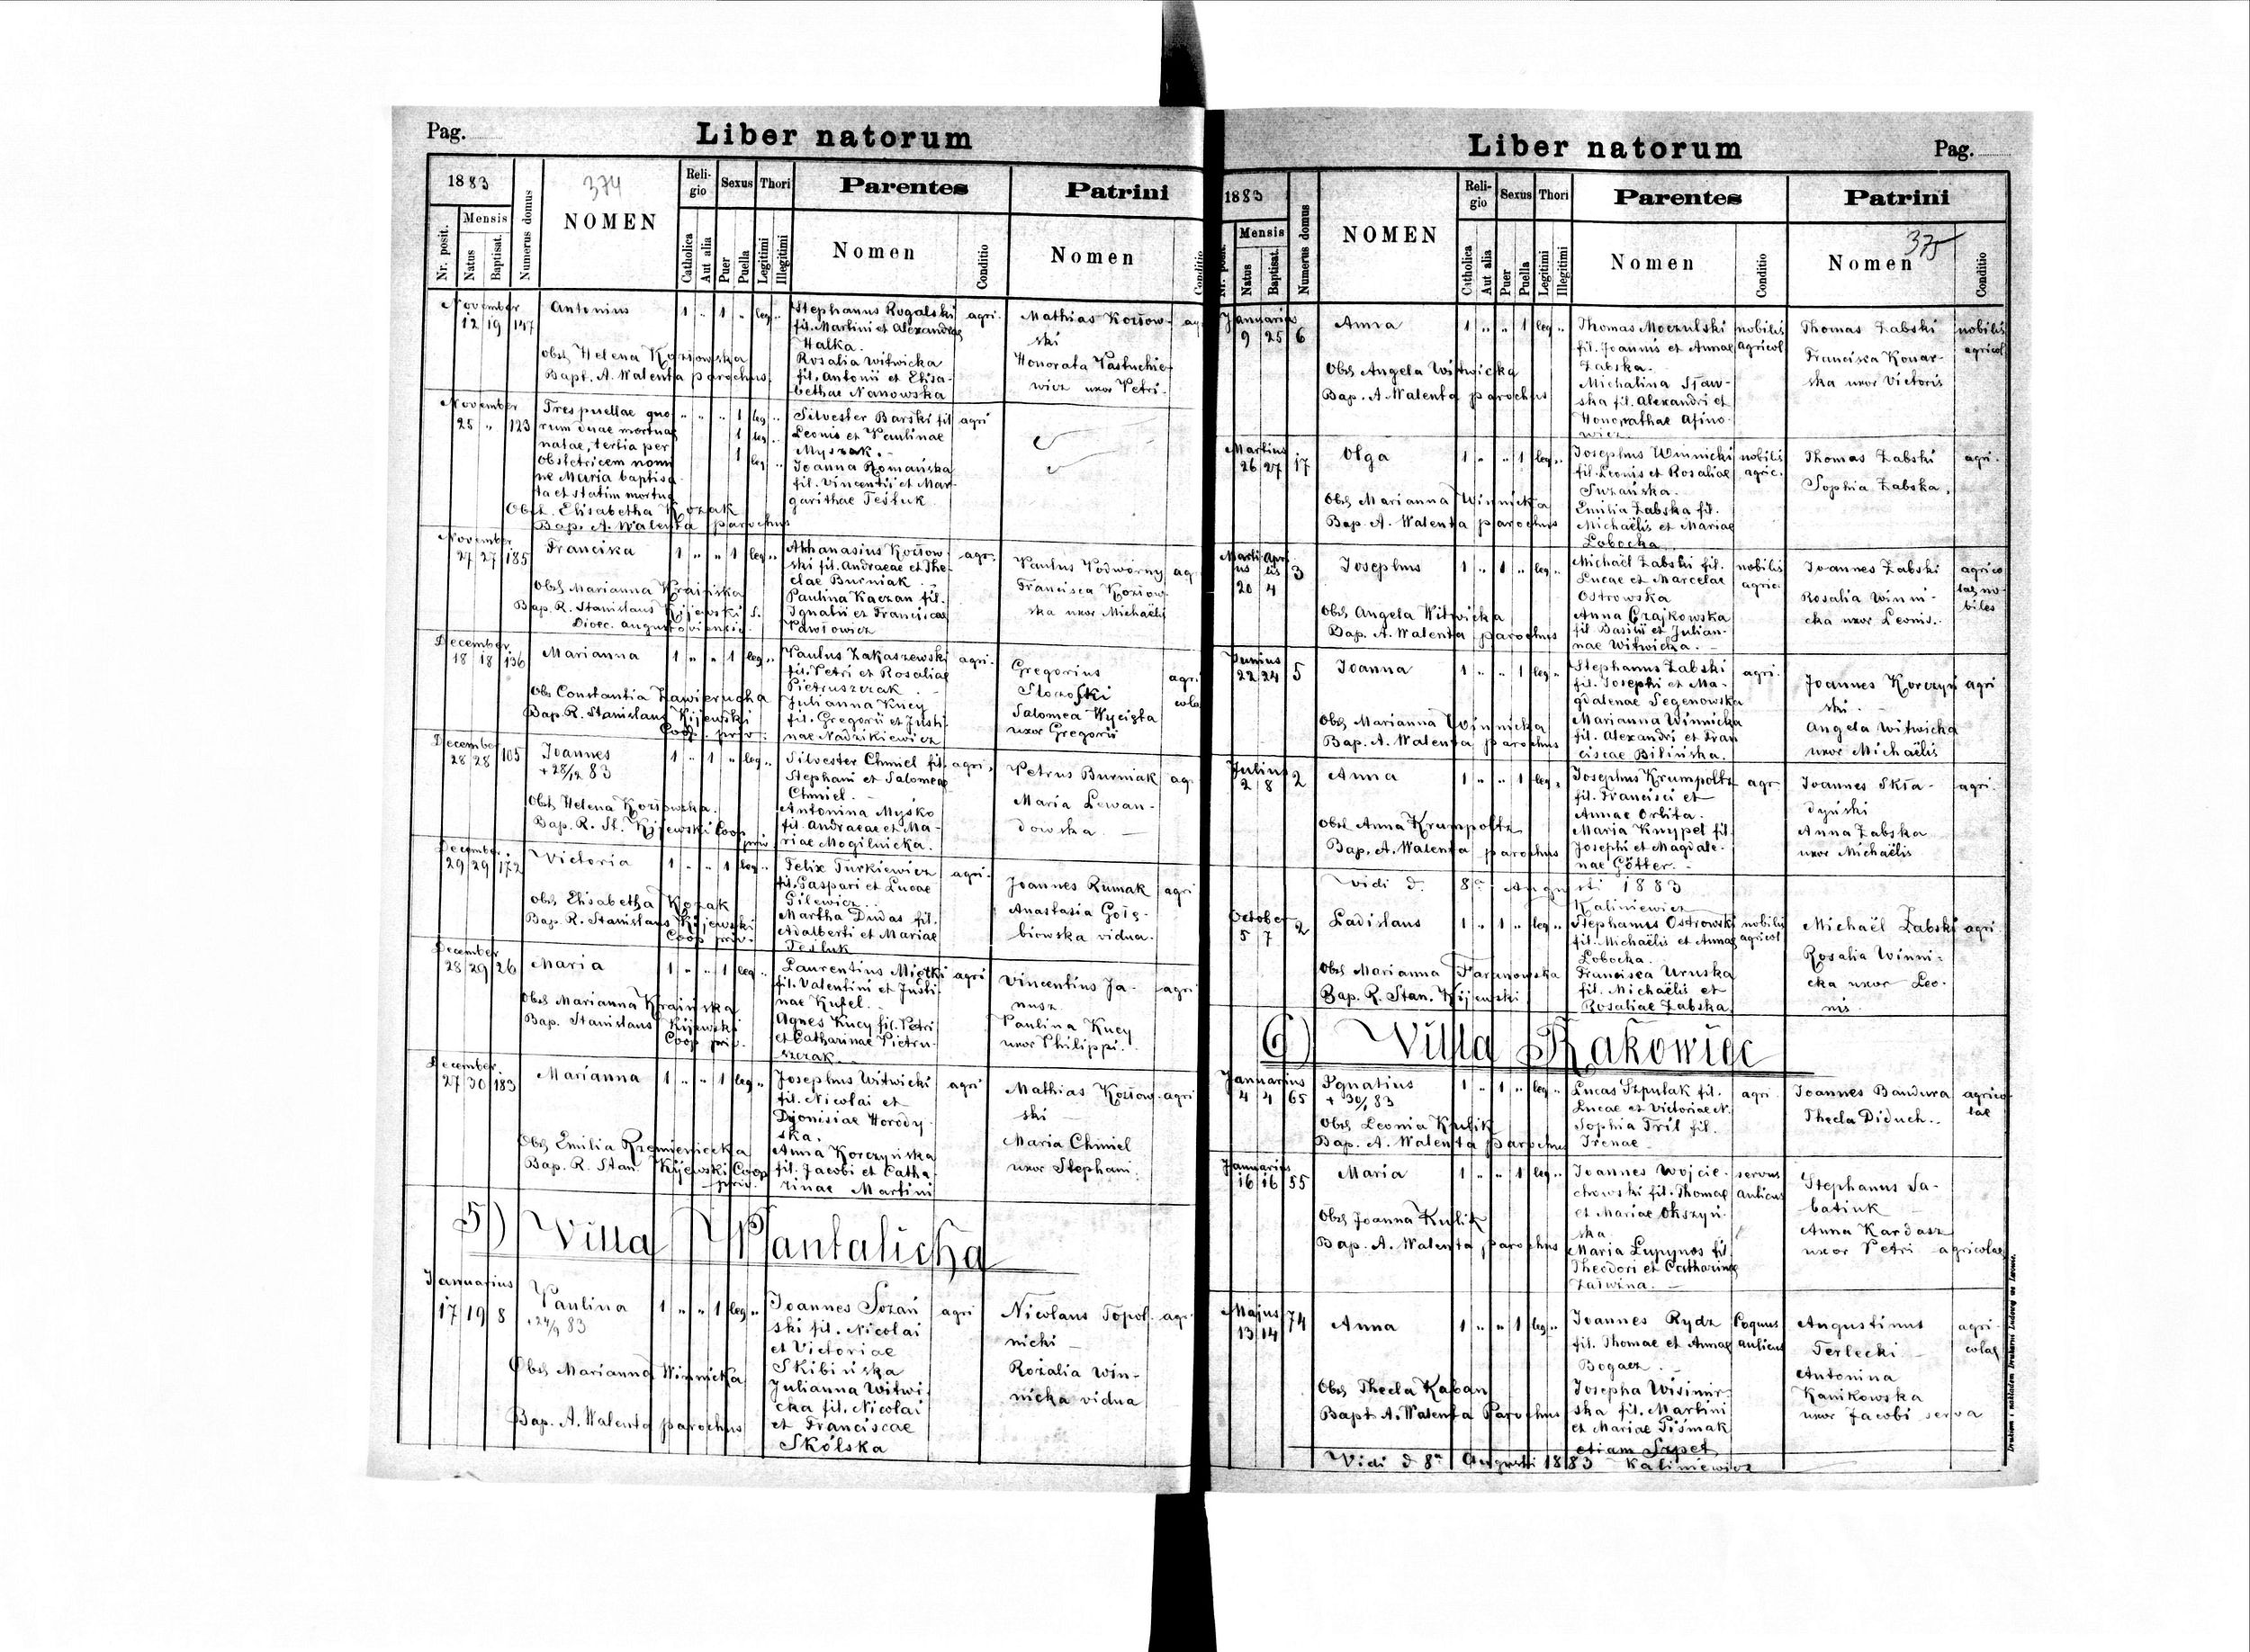 Pag.
Liber natorum
1883
374
NOMEN
Reli-
gio
Sexus
Thori
Parentes
Patrini
Nr. posit.
Mensis
Natus
Baptisat.
Numerus domus
Catholica
Aut alia
Puer
Puella
Legitimi
Illegitimi
Nomen
Conditio
Nomen
Conditio
November
12 19 147
Antonius
1 " 1 " leg "
Stephanus Rogalski
fil. Martini et Alexandrae
Halka.
Rosalia Witwicka
fil. Antonii et Elisa-
bethae Nanowska
agri.
Mathias Kozłow-
ski
Honorata Pastuchie-
wicz uxor Petri.
Obs. Helena Kozłowska
Bapt. A. Walenta parochus
November
25 " 123
Tres puellae quo
rum duae mortuae
natae, tertia per
obstetricem nomi
ne Maria baptisa
ta et statim mortua
" " " 1 leg "
1 leg "
1 leg "
Silvester Barski fil
Leonis et Paulinae
Myszak.
Joanna Romańska
fil. Vincentii et Mar-
garithae Tesluk
agri
Obst. Elisabetha Kozak
Bap. A. Walenta parochus
November
27 27 185
Francisca
1 " " 1 leg "
Athanasius Kozłow-
ski fil. Andraeae et The-
clae Burniak
Paulina Kaczan fil.
Ignatii et Franciscae
Pawłowicz
agri.
Paulus Podworny
Francisca Kozłow-
ska uxor Michaëlis
Obs. Marianna Kraińska
Bap. R. Stanislaus Kijewski S.
Dioec. augustoviensis.
December
18 18 136
Marianna
1 " " 1 leg "
Paulus Zakaszewski
fil. Petri et Rosaliae
Pietruszczak.
Julianna Kucy
fil. Gregorii et Justi-
nae Nadzikiewicz
agri.
Gregorius
Słoczoski
Salomea Wycisła
uxor Gregorii
agri
cola
Obs. Constantia Zawierucha
Bap. R. Stanislaus Kijewski
Coop. priv.
December
28 28 105
Joannes
+ 28/12 83
1 " 1 " leg "
Silvester Chmiel fil.
Stephani et Salomeae
Chmiel.
Antonina Myśko
fil. Andraeae et Ma-
riae Mogilnicka.
agri.
Petrus Burniak
Maria Lewan-
dowska
Obst. Helena Kozłowska.
Bap. R. St. Kijewski Coop
priv.
December.
29 29 172
Victoria
1 " " 1 leg "
Felix Turkiewicz
fil. Gaspari et Lucae
Gilewicz.
Martha Dudas fil.
Adalberti et Mariae
Tesluk
agri.
Joannes Rumak
Anastasia Gołę-
biowska vidua.
agri
Obs. Elisabetha Kozak
Bap. R. Stanislaus Kijewski
Coop priv.
December
28 29 26
Maria
1 " " 1 leg "
Laurentius Miczki
fil. Valentini et Justi-
nae Kufel.
Agnes Kucy fil. Petri
et Catharinae Pietru-
szczak
agri
Vincentius Ja-
nusz
Paulina Kucy
uxor Philippi.
agri
Obs. Marianna Kraińska
Bap. Stanislaus Kijewski
Coop priv.
December
27 30 183
Marianna
1 " " 1 leg "
Josephus Witwicki
fil. Nicolai et
Dyonisiae Horody
ska.
Anna Korczyńska
fil. Jacobi et Catha-
rinae Martini
agri
Mathias Kozłow-
ski
Maria Chmiel
uxor Stephani.
agri
Obs. Emilia Krzemieniecka
Bap. R. Stan Kijewski Coop
priv.
5) Villa Pantalicha
Januarius
17 19 8
Paulina
+ 24/9 83
1 " " 1 leg "
Joannes Sozań
ski fil. Nicolai
et Victoriae
Skibińska
Julianna Witwi-
cka fil. Nicolai
et Franciscae
Skólska
agri
Nicolaus Topol-
nicki
Rozalia Win-
nicka vidua
Obs. Marianna Winnicka
Bap. A. Walenta parochus
Liber natorum
Pag.
1883
NOMEN
Reli-
gio
Sexus
Thori
Parentes
Patrini
Nr. posit.
Mensis
Natus
Baptisat.
Numerus domus
Catholica
Aut alia
Puer
Puella
Legitimi
Illegitimi
Nomen
Conditio
Nomen
375
Conditio
Januarius
9 25 6
Anna
1 " " 1 leg "
Thomas Moczulski
fil. Joannis et Annae
Żabska.
Michalina Staw-
ska fil. Alexandri et
Honorathae Afino-
wicz
nobilis
agricol
Thomas Żabski
Francisca Konar-
ska uxor Victoris
nobilis
agricol
Obs. Angela Witwicka
Bap. A. Walenta parochus
Martius
26 27 17
Olga
1 " " 1 leg "
Josephus Winnicki
fil. Leonis et Rosaliae
Suzańska.
Emilia Żabska fil.
Michaëlis et Mariae
Łobocka
nobilis
agric.
Thomas Żabski
Sophia Żabska.
agri.
Obs. Marianna Winnicka
Bap. A. Walenta parochus
Marti Apri
us lis
20 4 3
Josephus
1 " 1 " leg "
Michaël Żabski fil.
Lucae et Marcelae
Ostrowska
Anna Czajkowska
fil. Basilii et Julian-
nae Witwicka.
nobilis
agric.
Joannes Żabski
Rosalia Winni-
cka uxor Leonis.
agrico
lae no-
biles
Obs. Angela Witwicka
Bap. A. Walenta parochus
Junius
22 24 5
Joanna
1 " " 1 leg "
Stephanus Żabski
fil. Josephi et Ma-
gdalenae Segenowska
Marianna Winnicka
fil. Alexandri et Fran
ciscae Bilińska.
agri.
Joannes Korczyń
ski
Angela Witwicka
uxor Michaëlis
agri
Obs. Marianna Winnicka
Bap. A. Walenta parochus
Julius
2 8 2
Anna
1 " " 1 leg "
Josephus Krumpoltz
fil. Francisci et
Annae Orlita.
Maria Knypel fil
Josephi et Magdale-
nae Götter.
agr
Joannes Skła-
dyński
Anna Żabska
uxor Michaëlis
agri.
Obst. Anna Krumpoltz
Bap. A. Walenta parochus
Vidi d. 8a Augusti 1883
Kaliniewicz
October
5 7 2
Ladislaus
1 " 1 " leg "
Stephanus Ostrowski
fil. Michaëlis et Annae
Łobocka.
Francisca Uruska
fil. Michaëlis et
Rosaliae Żabska.
nobilis
agricol
Michaël Żabski
Rosalia Winni-
cka uxor Leo-
nis.
agri
Obs. Marianna Taranowska
Bap. R. Stan. Kijewski
6) Villa Rakowiec
Januarius
4 4 65
Ignatius
+ 30/1 83
1 " 1 " leg "
Lucas Szpulak fil.
Lucae et Victoriae N.
Sophia Tril fil.
Irenae
agri
Joannes Bandura
Thecla Diduch.
agrico
lae
Obs. Leonia Kulik
Bap. A. Walenta parochus
Januarius
16 16 55
Maria
1 " " 1 leg "
Joannes Wojcie-
chowski fil. Thomae
et Mariae Okszyń-
ska
Maria Łupynos fil.
Theodori et Catharinae
Załwina.
servus
aulicus
Stephanus Sa-
batiuk
Anna Kardasz
uxor Petri agricolae
Obs. Joanna Kulik
Bap. A. Walenta parochus
Majus
13 14 74
Anna
1 " " 1 leg "
Joannes Rydz
fil. Thomae et Annae
Bogacz.
Josepha Wisimir-
ska fil. Martini
et Mariae Piśmak
etiam Szpet
Coquus
aulicus
Augustinus
Terlecki
Antonina
Kanikowska
uxor Jacobi serva
agri-
colae
Obs. Thecla Kaban
Bapt A. Walenta Parochus
Vidi d 8a Augusti 1883 Kaliniewicz